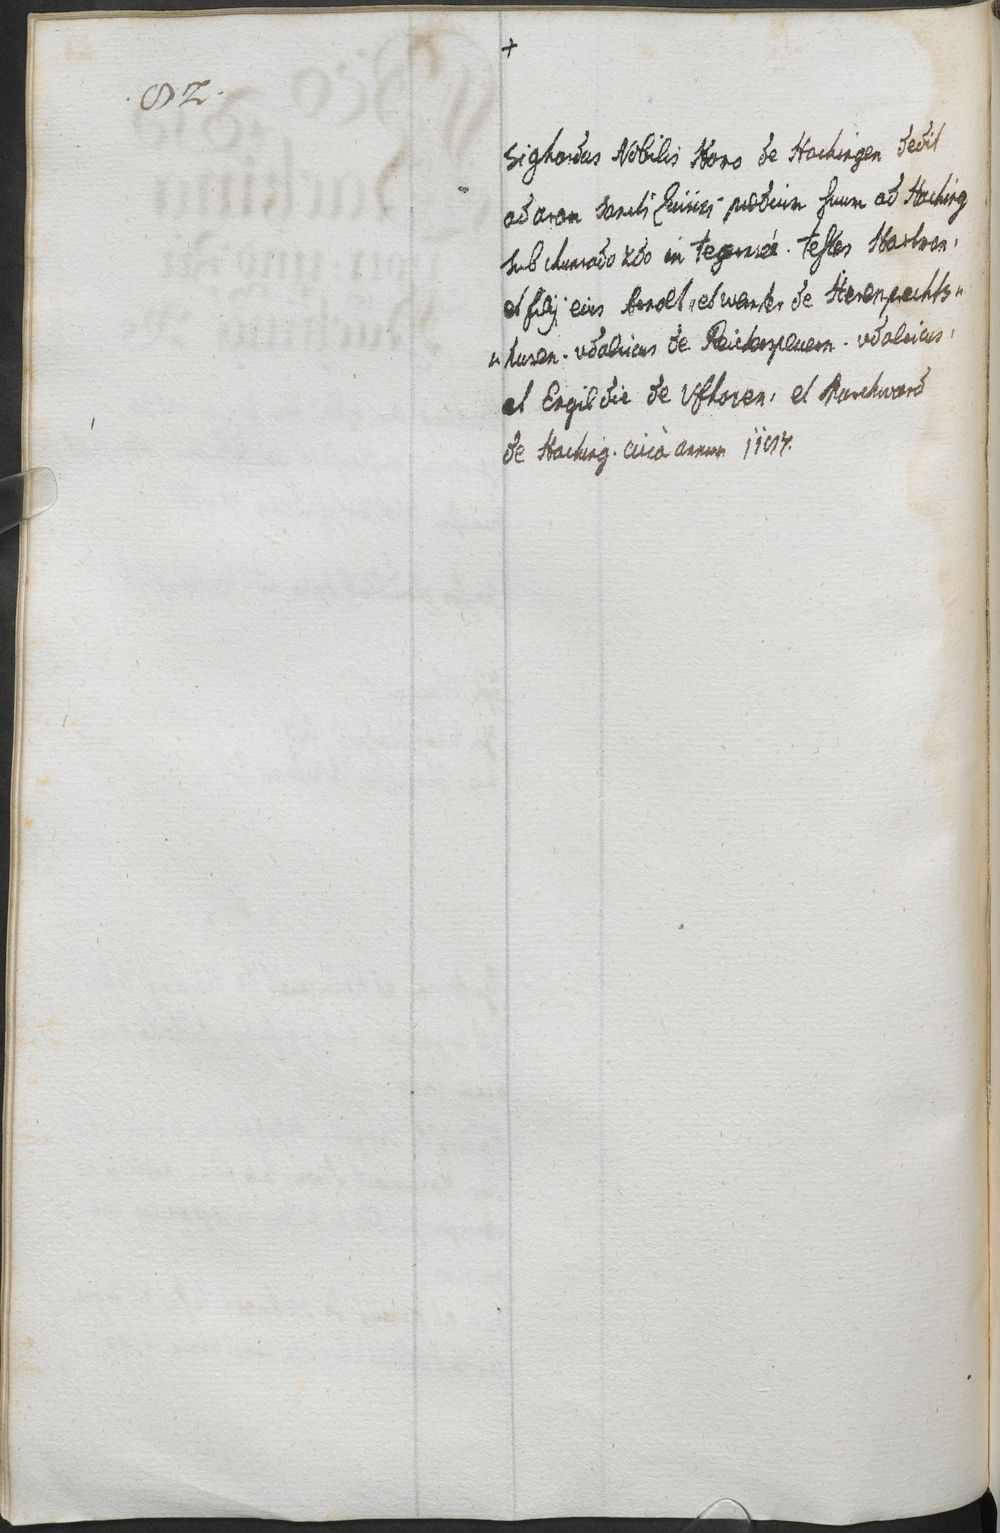 +
. 92 .
Sighardus Nobilis Homo de Hachingen dedit
ad aram Sancti Quirini praedium suum ad Haching
sub chunrado Xdo in tegernsee. testes Hartman,
et filij eius bernolt, et werther de Herenprechts„
„ husen. vdalricus de Reicherspeuern. vdalricus,
et Engildie de Vfhoven, et Marchward
de Haching. circa annum